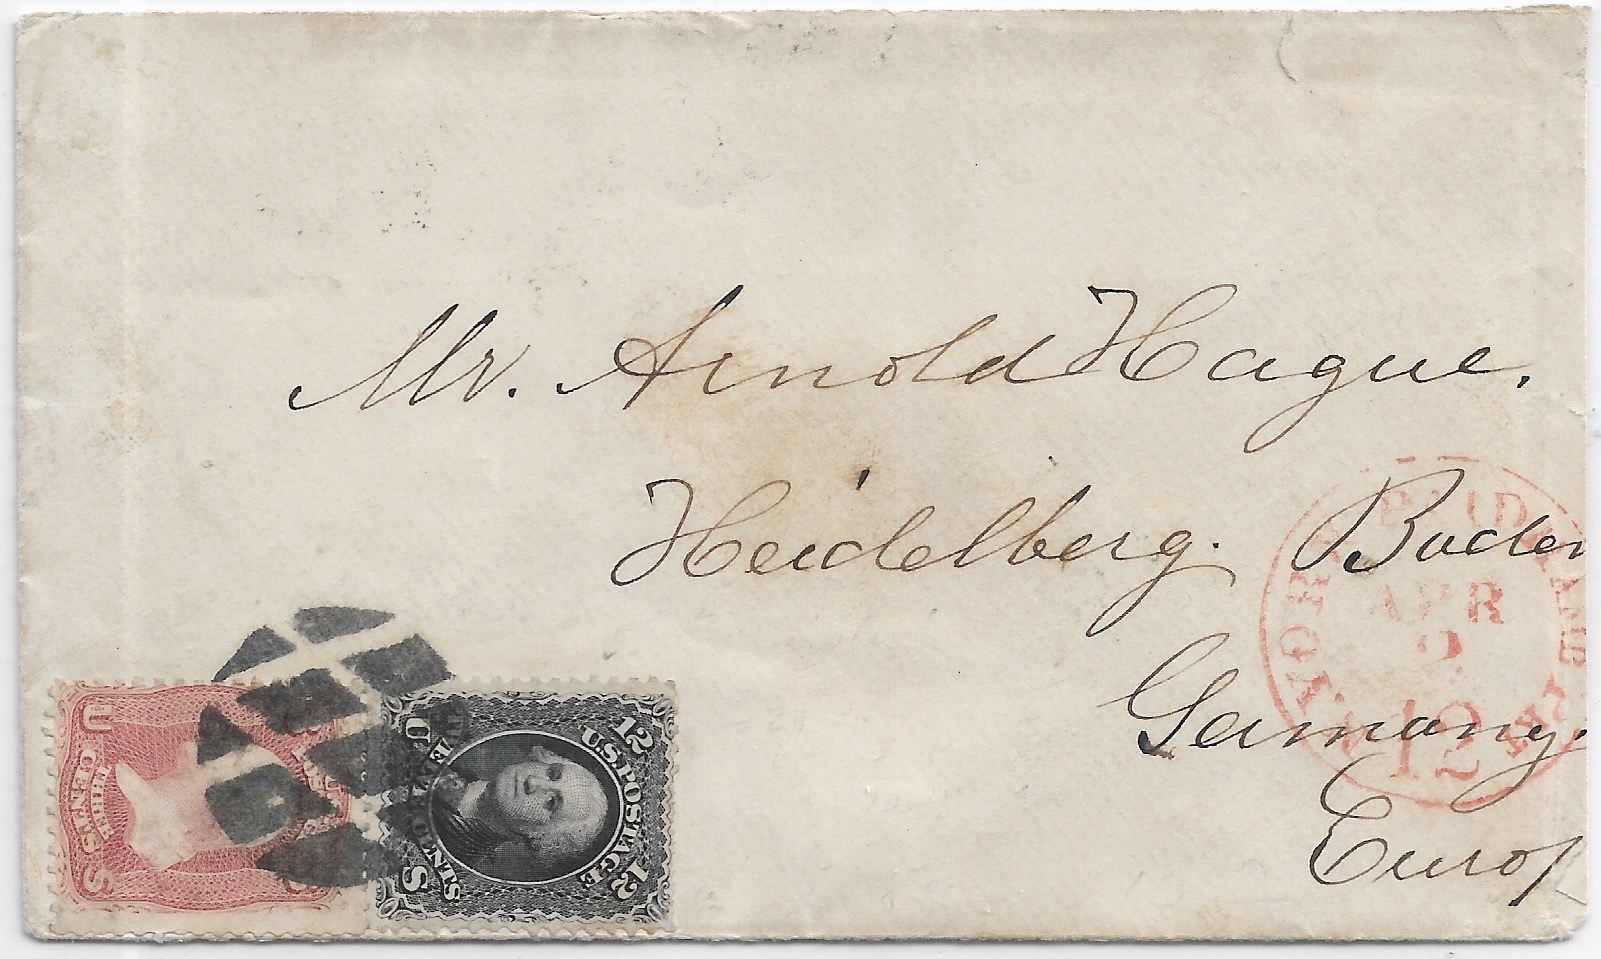 Mr. Arnold Hague.
Heidelberg. Baden
Germany.
Europ
YORK PAID
APR
2
12
U S
THREE CENTS
12 U.S. POSTAGE 12
TWELVE CENTS
U S